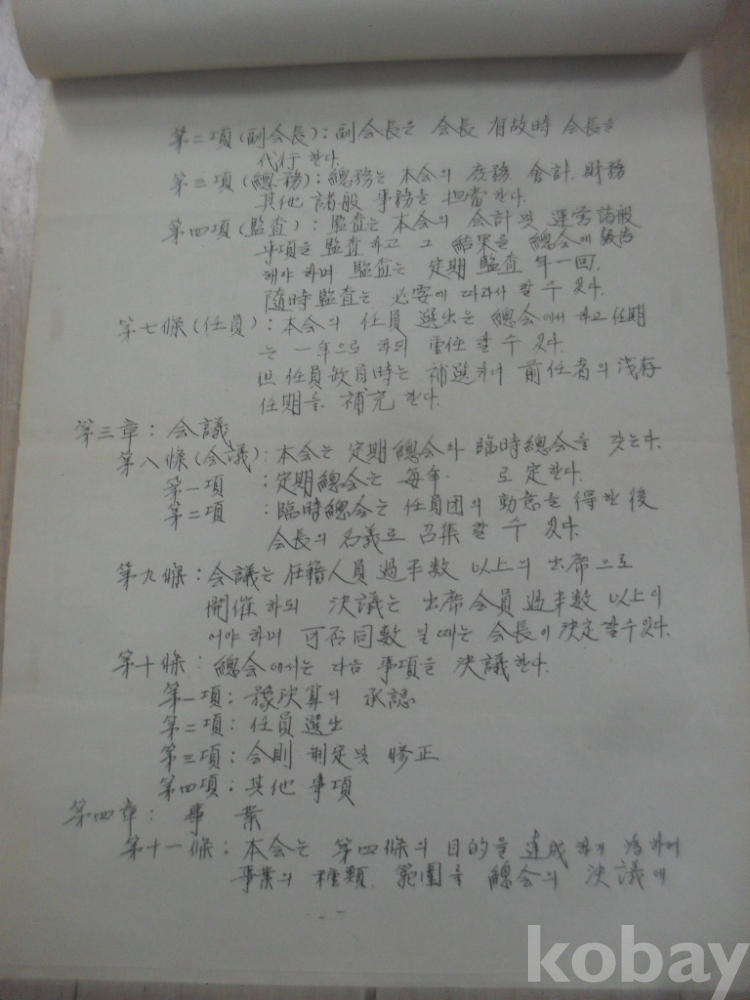 第二項(副会長): 副会長은 会長 有故時 会長을
代行 한다.
第三項(總務): 總務는 本会의 庶務 会計. 財務
其他 諸般 事務를 担當한다.
第四項(監査): 監査는 本会의 会計 및 運営 諸般
事項을 監査 하고 그 結果를 總会에
해야 하며 監査는 定期 監査 年一回.
隨時監査는 必要에 따라서 할 수 있다.
第七條(任員): 本会의 任員 選出은 總会에서 하고 任期
는 一年으로 하되 重任 할 수 있다.
但 任員缺員時는 補選하여 前任者의 残存
任期를 補充 한다.
第三章: 会議
第八條(会議): 本会는 定期總会와 臨時總会를 갖는다.
第一項 : 定期總会는 每年. 로 定한다.
第二項 : 臨時總会는 任員団의 動意를 得한 後
会長의 名義로 召集 할 수 있다.
第九條: 会議는 在籍人員 過半数 以上의 出席으로
開催 하되 決議는 出席会員 過半数 以上이
어야 하며 可否同数 일 때는 会長이 決定할수있다.
第十條: 總会에서는 다음 事項을 決議한다.
第一項: 豫決算의 承認
第二項: 任員選出
第三項: 会則 制定 및 修正
第四項: 其他 事項
第四章: 事 業
第十一條: 本会는 第四條의 目的을 達成 하기 為하여
事業의 種類. 範圍를 總会의 決議에
kobay